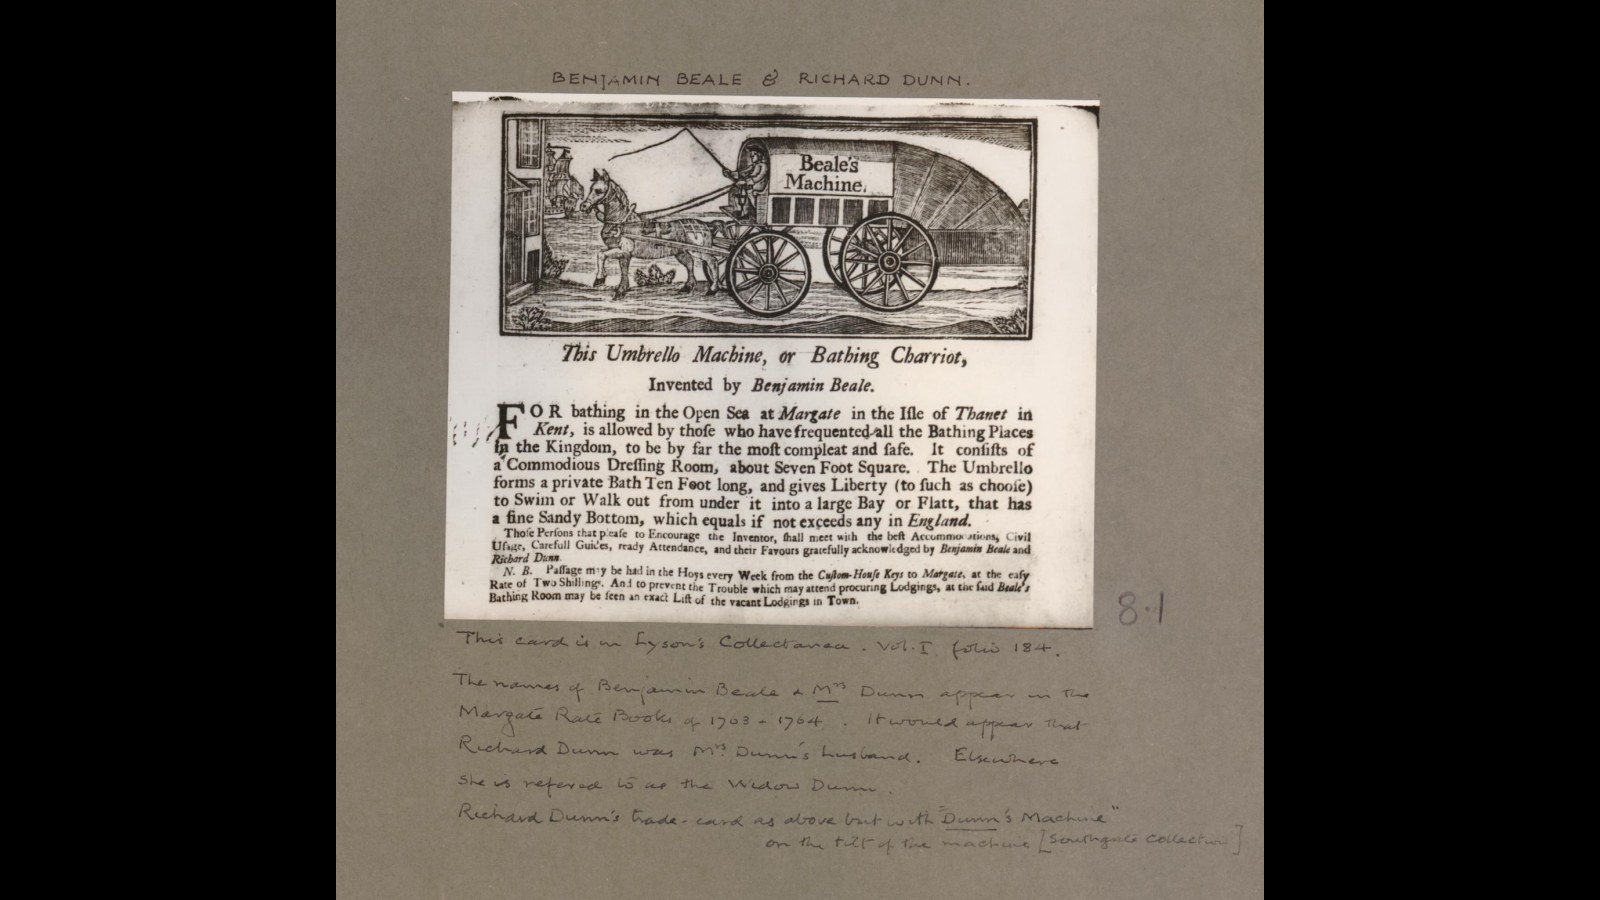 BENJAMIN BEALE & RICHARD DUNN.
Beale's
Machine.
This Umbrello Machine, or Bathing Charriot,
Invented by Benjamin Beale.
FOR bathing in the Open Sea at Margate in the Iſle of Thanet in
Kent, is allowed by thoſe who have frequented all the Bathing Places
in the Kingdom, to be by far the moſt compleat and ſafe. It conſiſts of
a Commodious Dreſſing Room, about Seven Foot Square. The Umbrello
forms a private Bath Ten Foot long, and gives Liberty (to ſuch as chooſe)
to Swim or Walk out from under it into a large Bay or Flatt, that has
a fine Sandy Bottom, which equals if not exceeds any in England.
Thoſe Perſons that pleaſe to Encourage the Inventor, ſhall meet with the beſt Accommodations, Civil
Uſage, Carefull Guides, ready Attendance, and their Favours gratefully acknowledged by Benjamin Beale and
Richard Dunn.
N. B. Paſſage may be had in the Hoys every Week from the Cuſtom-Houſe Keys to Margate, at the eaſy
Rate of Two Shillings. And to prevent the Trouble which may attend procuring Lodgings, at the ſaid Beale's
Bathing Room may be ſeen an exact Liſt of the vacant Lodgings in Town.
8.1
This card is in Lyson's Collectanea. Vol. I folio 184.
The names of Benjamin Beale & Mrs Dunn appear in the
Margate Rate Books of 1763 - 1764. It would appear that
Richard Dunn was Mrs. Dunn's husband. Elsewhere
she is refered to as the Widow Dunn.
Richard Dunn's trade-card as above but with "Dunn's Machine"
on the tilt of the machine [Southgate Collection]